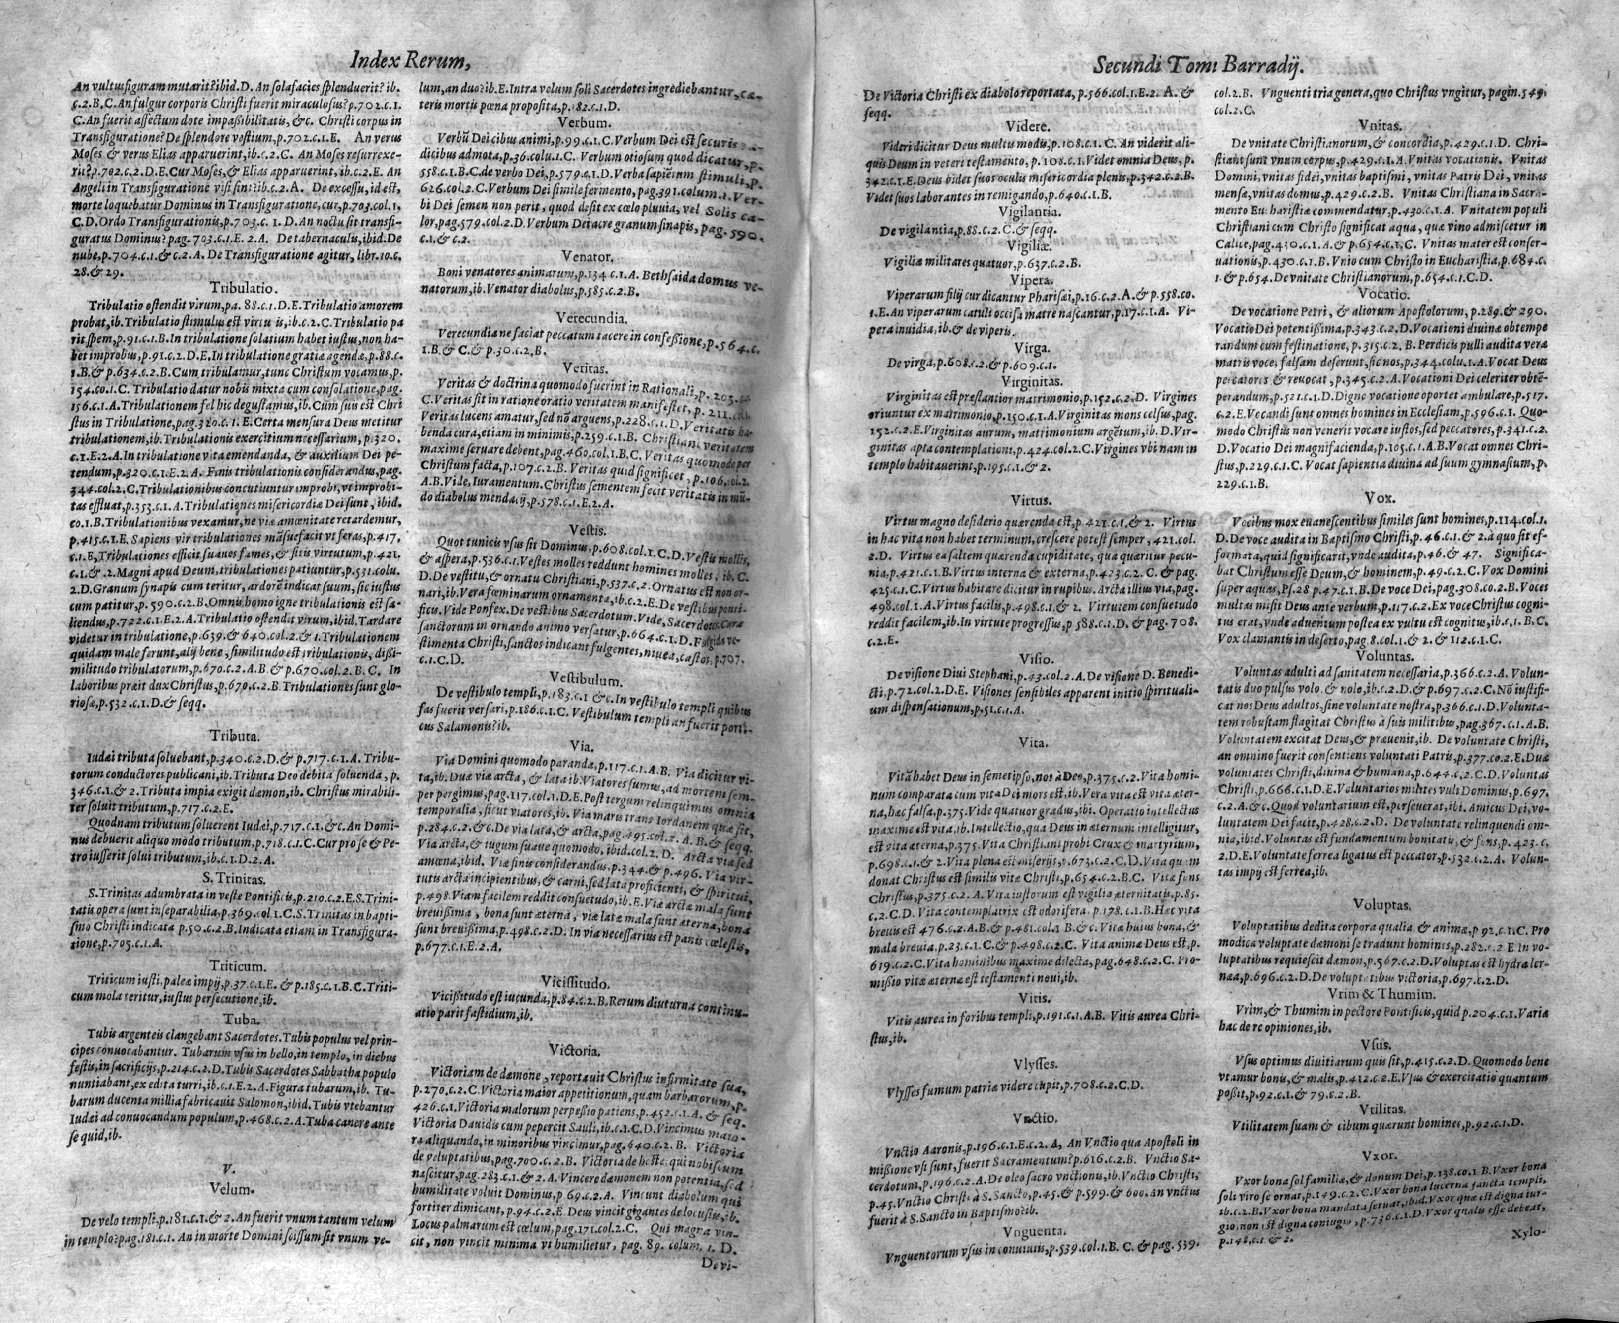 Index Rerum,
An vultus figuram mutarit? ibid. D. An sola facies splenduerit? ib.
c.2.B.C. An fulgur corporis Christi fuerit miraculosus? p.702.c.1.
C. An fuerit affectum dote impaßibilitatis, &c. Christi corpus in
Transfiguratione? De splendore vestium, p.702.c.1.E. An verus
Moses & verus Elias apparuerint, ib.c.2.C. An Moses resurrexe-
rit? p.702.c.2.D.E. Cur Moses, & Elias apparuerint, ib.c.2.E. An
Angeli in Transfiguratione visi sint? ib.c.2.A. De excessu, id est,
morte loquebatur Dominus in Transfiguratione, cur, p.703.col.1.
C.D. Ordo Transfigurationis, p.703.c.1.D. An noctu sit transfi-
guratus Dominus? pag.703.c.1.E.2.A. De tabernaculis, ibid. De
nube, p.704.c.1.& c.2.A. De Transfiguratione agitur, libr.10.c.
28.& 29.
Tribulatio.
Tribulatio ostendit virum, pa.88.c.1.D.E. Tribulatio amorem
probat, ib. Tribulatio stimulus est virtutis, ib.c.2.C. Tribulatio pa
rit spem, p.91.c.1.B. In tribulatione solatium habet iustus, non ha-
bet improbus, p.91.c.2.D.E. In tribulatione gratiæ agendæ, p.88.c.
1.B.& p.634.c.2.B. Cum tribulamur, tunc Christum vocamus, p.
154.co.1.C. Tribulatio datur nobis mixta cum consolatione, pag.
156.c.1.A. Tribulationem fel hic degustamus, ib. Cum suis est Chri
stus in Tribulatione, pag.320.c.1.E. Certa mensura Deus metitur
tribulationem, ib. Tribulationis exercitium necessarium, p.320.
c.1.E.2.A. In tribulatione vita emendanda, & auxilium Dei pe-
tendum, p.320.c.1.E.2.A. Finis tribulationis considerandus, pag.
344.col.2.C. Tribulationibus concutiuntur improbi, vt improbi-
tas effluat, p.353.c.1.A. Tribulationes misericordiæ Dei sunt, ibid.
co.1.B. Tribulationibus vexamur, ne viæ amœnitate retardemur,
p.415.c.1.E. Sapiens vir tribulationes mãsuefacit vt feras, p.417.
c.1.E. Tribulationes efficit suaues fames, & sitis virtutum, p.421.
c.1.& .2. Magni apud Deum, tribulationes patiuntur, p.531.colu.
2.D. Granum synapis cum teritur, ardorẽ indicat suum, sic iustus
cum patitur, p.590.c.2.B. Omnis homo igne tribulationis est sa-
liendus, p.722.c.1.E.2.A. Tribulatio ostendit virum, ibid. Tardare
videtur in tribulatione, p.639.& 640.col.2.& 1. Tribulationem
quidam male ferunt, alij bene, similitudo est tribulationis, dißi-
militudo tribulatorum, p.670.c.2.A.B & p.670.col.2.B.C. In
laboribus præit dux Christus, p.679.c.2.B. Tribulationes sunt glo-
riosæ, p.532.c.1.D.& seqq.
Tributa.
Iudæi tributa soluebant, p.340.c.2.D.& p.717.c.1.A. Tribu-
torum conductores publicani, ib. Tributa Deo debita soluenda, p.
346.c.1.& 2. Tributa impia exigit dæmon, ib. Christus mirabili-
ter soluit tributum, p.717.c.2.E.
Quodnam tributum soluerent Iudæi, p.717.c.1.&c. An Domi-
nus debuerit aliquo modo tributum, p.718.c.1.C. Cur pro se & Pe-
tro iusserit solui tributum, ib.c.1.D.2.A.
S. Trinitas.
S. Trinitas adumbrata in veste Pontificis, p.210.c.2.E. S. Trini-
tatis opera sunt inseparabilia, p.369.col.1.C. S. Trinitas in bapti-
smo Christi indicata p.50.c.2.B. Indicata etiam in Transfigura-
tione, p.705.c.1.A.
Triticum.
Triticum iusti, paleæ impij, p.37.c.1.E. & p.185.c.1.B.C. Triti-
cum mola teritur, iustus persecutione, ib.
Tuba.
Tubis argenteis clangebant Sacerdotes. Tubis populus vel prin-
cipes conuocabantur. Tubarum vsus in bello, in templo, in diebus
festis, in sacrificijs, p.214.c.2.D. Tubis Sacerdotes Sabbatha populo
nuntiabant, ex edita turri, ib.c.1.E.2.A. Figura tubarum, ib. Tu-
barum ducenta millia fabricauit Salomon, ibid. Tubis vtebantur
Iudæi ad conuocandum populum, p.468.c.2.A. Tuba canere ante
se quid, ib.
V.
Velum.
De velo templi, p.181.c.1.& 2. An fuerit vnum tantum velum
in templo? pag.181.c.1. An in morte Domini scissum sit vnum ve-
lum, an duo? ib.E. Intra velum soli Sacerdotes ingrediebantur, cæ-
teris mortis pœna proposita, p.182.c.1.D.
Verbum.
Verbũ Dei cibus animi, p.99.c.1.C. Verbum Dei est securis
dicibus admota, p.36.colu.1.C. Verbum otiosum quod dicatur, p.
558.c.1.B.C. de verbo Dei, p.579.c.1.D. Verba sapiẽtum stimuli, p.
626.col.2.C. Verbum Dei simile fermento, pag.391.colum.1. Ver-
bi Dei semen non perit, quod desit ex cœlo pluuia, vel Solis ca-
lor, pag.579.col.2.D. Verbum Dei acre granum sinapis, pag.590.
c.1.& c.2.
Venator.
Boni venatores animarum, p.134 c.1.A. Bethsaida domus ve-
natorum, ib. Venator diabolus, p.585.c.2.B.
Verecundia.
Verecundia ne faciat peccatum tacere in confessione, p.564.c.
1.B.& C.& p.30.c.2.B.
Veritas.
Veritas & doctrina quomodo fuerint in Rationali, p.203.
C. Veritas sit in ratione oratio veritatem manifestet, p.211.
Veritas lucens amatur, sed nõ arguens, p.228.c.1.D. Veritatis ha-
benda cura, etiam in minimis, p.259.c.1.B. Christiani veritatem
maxime seruare debent, pag.460.col.1.B.C. Veritas quomodo per
Christum facta, p.107.c.2.B. Veritas quid significet, p.106.col.2.
A.B. Vide, Iuramentum. Christus sementem fecit veritatis in mũ-
do diabolus mendacij, p.578.c.1.E.2.A.
Vestis.
Quot tunicis vsus sit Dominus, p.608.col.1.C.D. Vestis mollis,
& aspera, p.536.c.1. Vestes molles reddunt homines molles, ib.C.
D. De vestitu, & ornatu Christiani, p.537.c.2. Ornatus est non or-
nari, ib. Vera fœminarum ornamenta, ib.c.2.E. De vestibus ponti-
ficu. Vide Ponfex. De vestibus Sacerdotum. Vide, Sacerdotes. Cura
sanctorum in ornando animo versatur, p.664.c.1.D. Fulgida ve-
stimenta Christi, sanctos indicant fulgentes, niuea, castos, p.707.
c.1.C.D.
Vestibulum.
De vestibulo templi, p.183.c.1 &c. In vestibulo templi quibus
fas fuerit versari, p.186.c.1.C. Vestibulum templi an fuerit porti-
cus Salamonis? ib.
Via.
Via Domini quomodo paranda, p.117.c.1.A.B. Via dicitur vi-
ta, ib. Duæ viæ arcta, & lata ib. Viatores sumus, ad mortem sem-
per pergimus, pag.117.col.1.D.E. Post tergum relinquimus omnia
temporalia, sicut viatores, ib. Via maris trans Iordanem quæ sit,
p.284.c.2.&c. De via lata, & arcta, pag.495.col.2.A.B.& seqq.
Via arcta, & iugum suaue quomodo, ibid.col.2.D. Arcta via sed
amœna, ibid. Viæ finis considerandus, p.344.& p.496. Via vir-
tutis arcta incipientibus, & carni, sed lata proficienti, & spiritui,
p.498. Viam facilem reddit consuetudo, ib.E. Viæ arctæ mala sunt
breuißima, bona sunt æterna, viæ latæ mala sunt æterna, bona
sunt breuißima, p.498.c.2.D. In via necessarius est panis cœlestis,
p.677.c.1.E.2.A.
Vicissitudo.
Vicißitudo est iucunda, p.84.c.2.B. Rerum diuturna continu-
atio parit fastidium, ib.
Victoria.
Victoriam de dæmone, reportauit Christus infirmitate sua,
p.270.c.2.C. Victoria maior appetitionum, quam barbarorum, p.
426.c.1. Victoria malorum perpessio patiens, p.452.c.1.A. & seq.
Victoria Dauidis cum pepercit Sauli, ib.c.1.C.D. Vincimus maio-
ra aliquando, in minoribus vincimur, pag.640.c.2.B. Victoria
de voluptatibus, pag.700.c.2.B. Victoria de hoste, qui nobiscum
nascitur, pag.283.c.1.& 2.A. Vincere dæmonem non potentia, sed
humilitate voluit Dominus, p.69.c.2.A. Vincunt diabolum qui
fortiter dimicant, p.94.c.2.E. Deus vincit gigantes de locustis, ib.
Locus palmarum est cœlum, pag.171.col.2.C. Qui magna vin-
cit, non vincit minima vt humilietur, pag.89.colum.1.D.
De vi-
Secundi Tomi Barradij.
De Victoria Christi ex diabolo reportata, p.566.col.1.E.2.A.&
seqq.
Videre.
Videri dicitur Deus multis modis, p.108.c.1.C. An viderit ali-
quis Deum in veteri testamento, p.108.c.1. Videt omnia Deus, p.
342.c.1.E. Deus videt suos oculis misericordia plenis, p.342.c.2.B.
Videt suos laborantes in remigando, p.640.c.1.B.
Vigilantia.
De vigilantia, p.88.c.2.C.& seqq.
Vigiliæ.
Vigiliæ militares quatuor, p.637.c.2.B.
Vipera.
Viperarum filij cur dicantur Pharisæi, p.16.c.2.A.& p.558.co.
1.E. An viperarum catuli occisa matre nascantur, p.17.c.1.A. Vi-
pera inuidia, ib.& de viperis.
Virga.
De virga, p.608.c.2.& p.609.c.1.
Virginitas.
Virginitas est præstantior matrimonio, p.152.c.2.D. Virgines
oriuntur ex matrimonio, p.150.c.1.A. Virginitas mons celsus, pag.
152.c.2.E. Virginitas aurum, matrimonium argẽtum, ib.D. Vir-
ginitas apta contemplationi, p.424.col.2.C. Virgines vbi nam in
templo habitauerint, p.195.c.1.& 2.
Virtus.
Virtus magno desiderio quærenda est, p.421.c.1.& 2. Virtus
in hac vita non habet terminum, crescere potest semper, 421.col.
2.D. Virtus ea saltem quærenda cupiditate, qua quæritur pecu-
nia, p.421.c.1.B. Virtus interna & externa, p.423.c.2.C.& pag.
425.c.1.C. Virtus habitare dicitur in rupibus. Arcta illius via, pag.
498.col.1.A. Virtus facilis, p.498.c.1.& 2. Virtutem consuetudo
reddit facilem, ib. In virtute progressus, p.588.c.1.D.& pag.708.
c.2.E.
Visio.
De visione Diui Stephani, p.43.col.2.A. De visione D. Benedi-
cti, p.72.col.2.D.E. Visiones sensibiles apparent initio spirituali-
um dispensationum, p.51.c.1.A.
Vita.
Vitã habet Deus in semetipso, not à Deo, p.375.c.2. Vita homi-
num comparata cum vita Dei mors est, ib. Vera vita est vita æter-
na, hac falsa, p.375. Vide quatuor gradus, ibi. Operatio intellectus
maxime est vita, ib. Intellectio, qua Deus in æternum intelligitur,
est vita æterna, p.375. Vita Christiani probi Crux & martyrium,
p.698.c.1.& 2. Vita plena est miserijs, p.673.c.2.C.D. Vita quam
donat Christus est similis vitæ Christi, p.654.c.2.B.C. Vitæ fons
Christus, p.375.c.2.A. Vita iustorum est vigilia æternitatis, p.85.
c.2.C.D. Vita contemplatrix est odorifera, p.178.c.1.B. Hæc vita
breuis est 476.c.2.A.B.& p.481.col.1 B.&c. Vitæ huius bona, &
mala breuia, p.23.c.1.C.& p.498.c.2.C. Vita animæ Deus est, p.
619.c.2.C. Vita hominibus maxime dilecta, pag.648.c.2.C. Pro-
mißio vitæ æternæ est testamenti noui, ib.
Vitis.
Vitis aurea in foribus templi, p.191.c.1.A.B. Vitis aurea Chri-
stus, ib.
Vlysses.
Vlysses fumum patriæ videre cupit, p.708.c.2.C.D.
Vnctio.
Vnctio Aaronis, p.196.c.1.E.c.2.A. An Vnctio qua Apostoli in
mißione vsi sunt, fuerit Sacramentum? p.616.c.2.B. Vnctio Sa-
cerdotum, p.196.c.2.A. De oleo sacro vnctionis, ib. Vnctio Christi,
p.45. Vnctio Christi à S. Sancto, p.45.& p.599.& 600. An vnctus
fuerit à S. Sancto in Baptismo? ib.
Vnguenta.
Vnguentorum vsus in conuiuiis, p.539.col.1.B.C.& pag.539.
col.2.B. Vnguenti tria genera, quo Christus vngitur, pagin.549.
col.2.C.
Vnitas.
De vnitate Christianorum, & concordia, p.429.c.1.D. Chri-
stiani sunt vnum corpus, p.429.c.1.A. Vnitas vocationis. Vnitas
Domini, vnitas fidei, vnitas baptismi, vnitas Patris Dei, vnitas
mensæ, vnitas domus, p.429.c.2.B. Vnitas Christiana in Sacra-
mento Eucharistiæ commendatur, p.430.c.1.A. Vnitatem populi
Christiani cum Christo significat aqua, quæ vino admiscetur in
Calice, pag.430.c.1.A.& p.654.c.1.C. Vnitas mater est conser-
uationis, p.430.c.1.B. Vnio cum Christo in Eucharistia, p.684.c.
1.& p.654. De vnitate Christianorum, p.654.c.1.C.D.
Vocatio.
De vocatione Petri, & aliorum Apostolorum, p.289.& 290.
Vocatio Dei potentißima, p.343.c.2.D. Vocationi diuinæ obtempe
randum cum festinatione, p.315.c.2.B. Perdicis pulli audita veræ
matris voce, falsam deserunt, sic nos, p.344.colu.1.A. Vocat Deus
peccatores & reuocat, p.345.c.2.A. Vocationi Dei celeriter obtẽ-
perandum, p.521.c.1.D. Digne vocatione oportet ambulare, p.517.
c.2.E. Vocandi sunt omnes homines in Ecclesiam, p.596.c.1. Quo-
modo Christus non venerit vocare iustos, sed peccatores, p.341.c.2.
D. Vocatio Dei magnifacienda, p.105.c.1.A.B. Vocat omnes Chri-
stus, p.229.c.1.C. Vocat sapientia diuina ad suum gymnasium, p.
229.c.1.B.
Vox.
Vocibus mox euanescentibus similes sunt homines, p.114.col.1.
D. De voce audita in Baptismo Christi, p.46.c.1.& 2. à quo sit ef-
formata, quid significarit, vnde audita, p.46.& 47. Significa-
bat Christum esse Deum, & hominem, p.49.c.2.C. Vox Domini
super aquas, Ps.28 p.47.c.1.B. De voce Dei, pag.308.co.2.B. Voces
multas misit Deus ante verbum, p.117.c.2. Ex voce Christus cogni-
tus erat, vnde aduentum postea ex vultu est cognitus, ib.c.1.B.C.
Vox clamantis in deserto, pag.8.col.1.& 2.& 112.c.1.C.
Voluntas.
Voluntas adulti ad sanitatem necessaria, p.366.c.2.A. Volun-
tatis duo pulsus volo, & nolo, ib.c.2.D.& p.697.c.2.C. Nõ iustifi-
cat nos Deus adultos, sine voluntate nostra, p.366.c.1.D. Volunta-
tem robustam flagitat Christus à suis militibus, pag.367.c.1.A.B.
Voluntatem excitat Deus, & præuenit, ib. De voluntate Christi,
an omnino fuerit consentiens voluntati Patris, p.377.co.2.E. Duæ
voluntates Christi, diuina & humana, p.644.c.2.C.D. Voluntas
Christi, p.666.c.1.D.E. Voluntarios milites vult Dominus, p.697.
c.2.A.&c. Quod voluntarium est, perseuerat, ibi. Amicus Dei, vo-
luntatem Dei facit, p.428.c.2.D. De voluntate relinquendi om-
nia, ibid. Voluntas est fundamentum bonitatis, & fons, p.423.c.
2.D.E. Voluntate ferrea ligatus est peccator, p.532.c.2.A. Volun-
tas impij est ferrea, ib.
Voluptas.
Voluptatibus dedita corpora qualia & animæ, p.92.c.1.C. Pro
modica voluptate dæmoni se tradunt homines, p.282.c.2 E In vo-
luptatibus requiescit dæmon, p.567.c.2.D. Voluptas est hydra ler-
næa, p.696.c.2.D. De voluptatibus victoria, p.697.c.2.D.
Vrim & Thumim.
Vrim, & Thumim in pectore Pontificis, quid p.204.c.1. Varia
hac de re opiniones, ib.
Vsus.
Vsus optimus diuitiarum quis sit, p.415.c.2.D. Quomodo bene
vtamur bonis, & malis, p.412.c.2.E. Vsus & exercitatio quantum
poßit, p.92.c.1.& 79.c.2.B.
Vtilitas.
Vtilitatem suam & cibum quærunt homines, p.92.c.1.D.
Vxor.
Vxor bona sol familiæ, & donum Dei, p.138.co.1.B. Vxor bona
soli viro se ornat, p.149.c.2.C. Vxor bona lucerna sancta templi,
ib.c.2.B. Vxor bona mandata seruat, ibid. Vxor quæ est digna iur-
gio, non est digna coniugio, p.736.c.1.D. Vxor qualis esse debeat,
p.148.c.1 & 2.
Xylo-